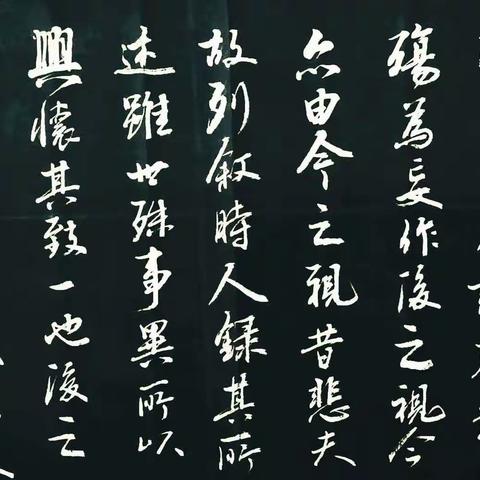 殤為妄作後之視今
亦由今之視昔悲夫
故列叙時人錄其所
述雖世殊事異所以
興懷其致一也後之